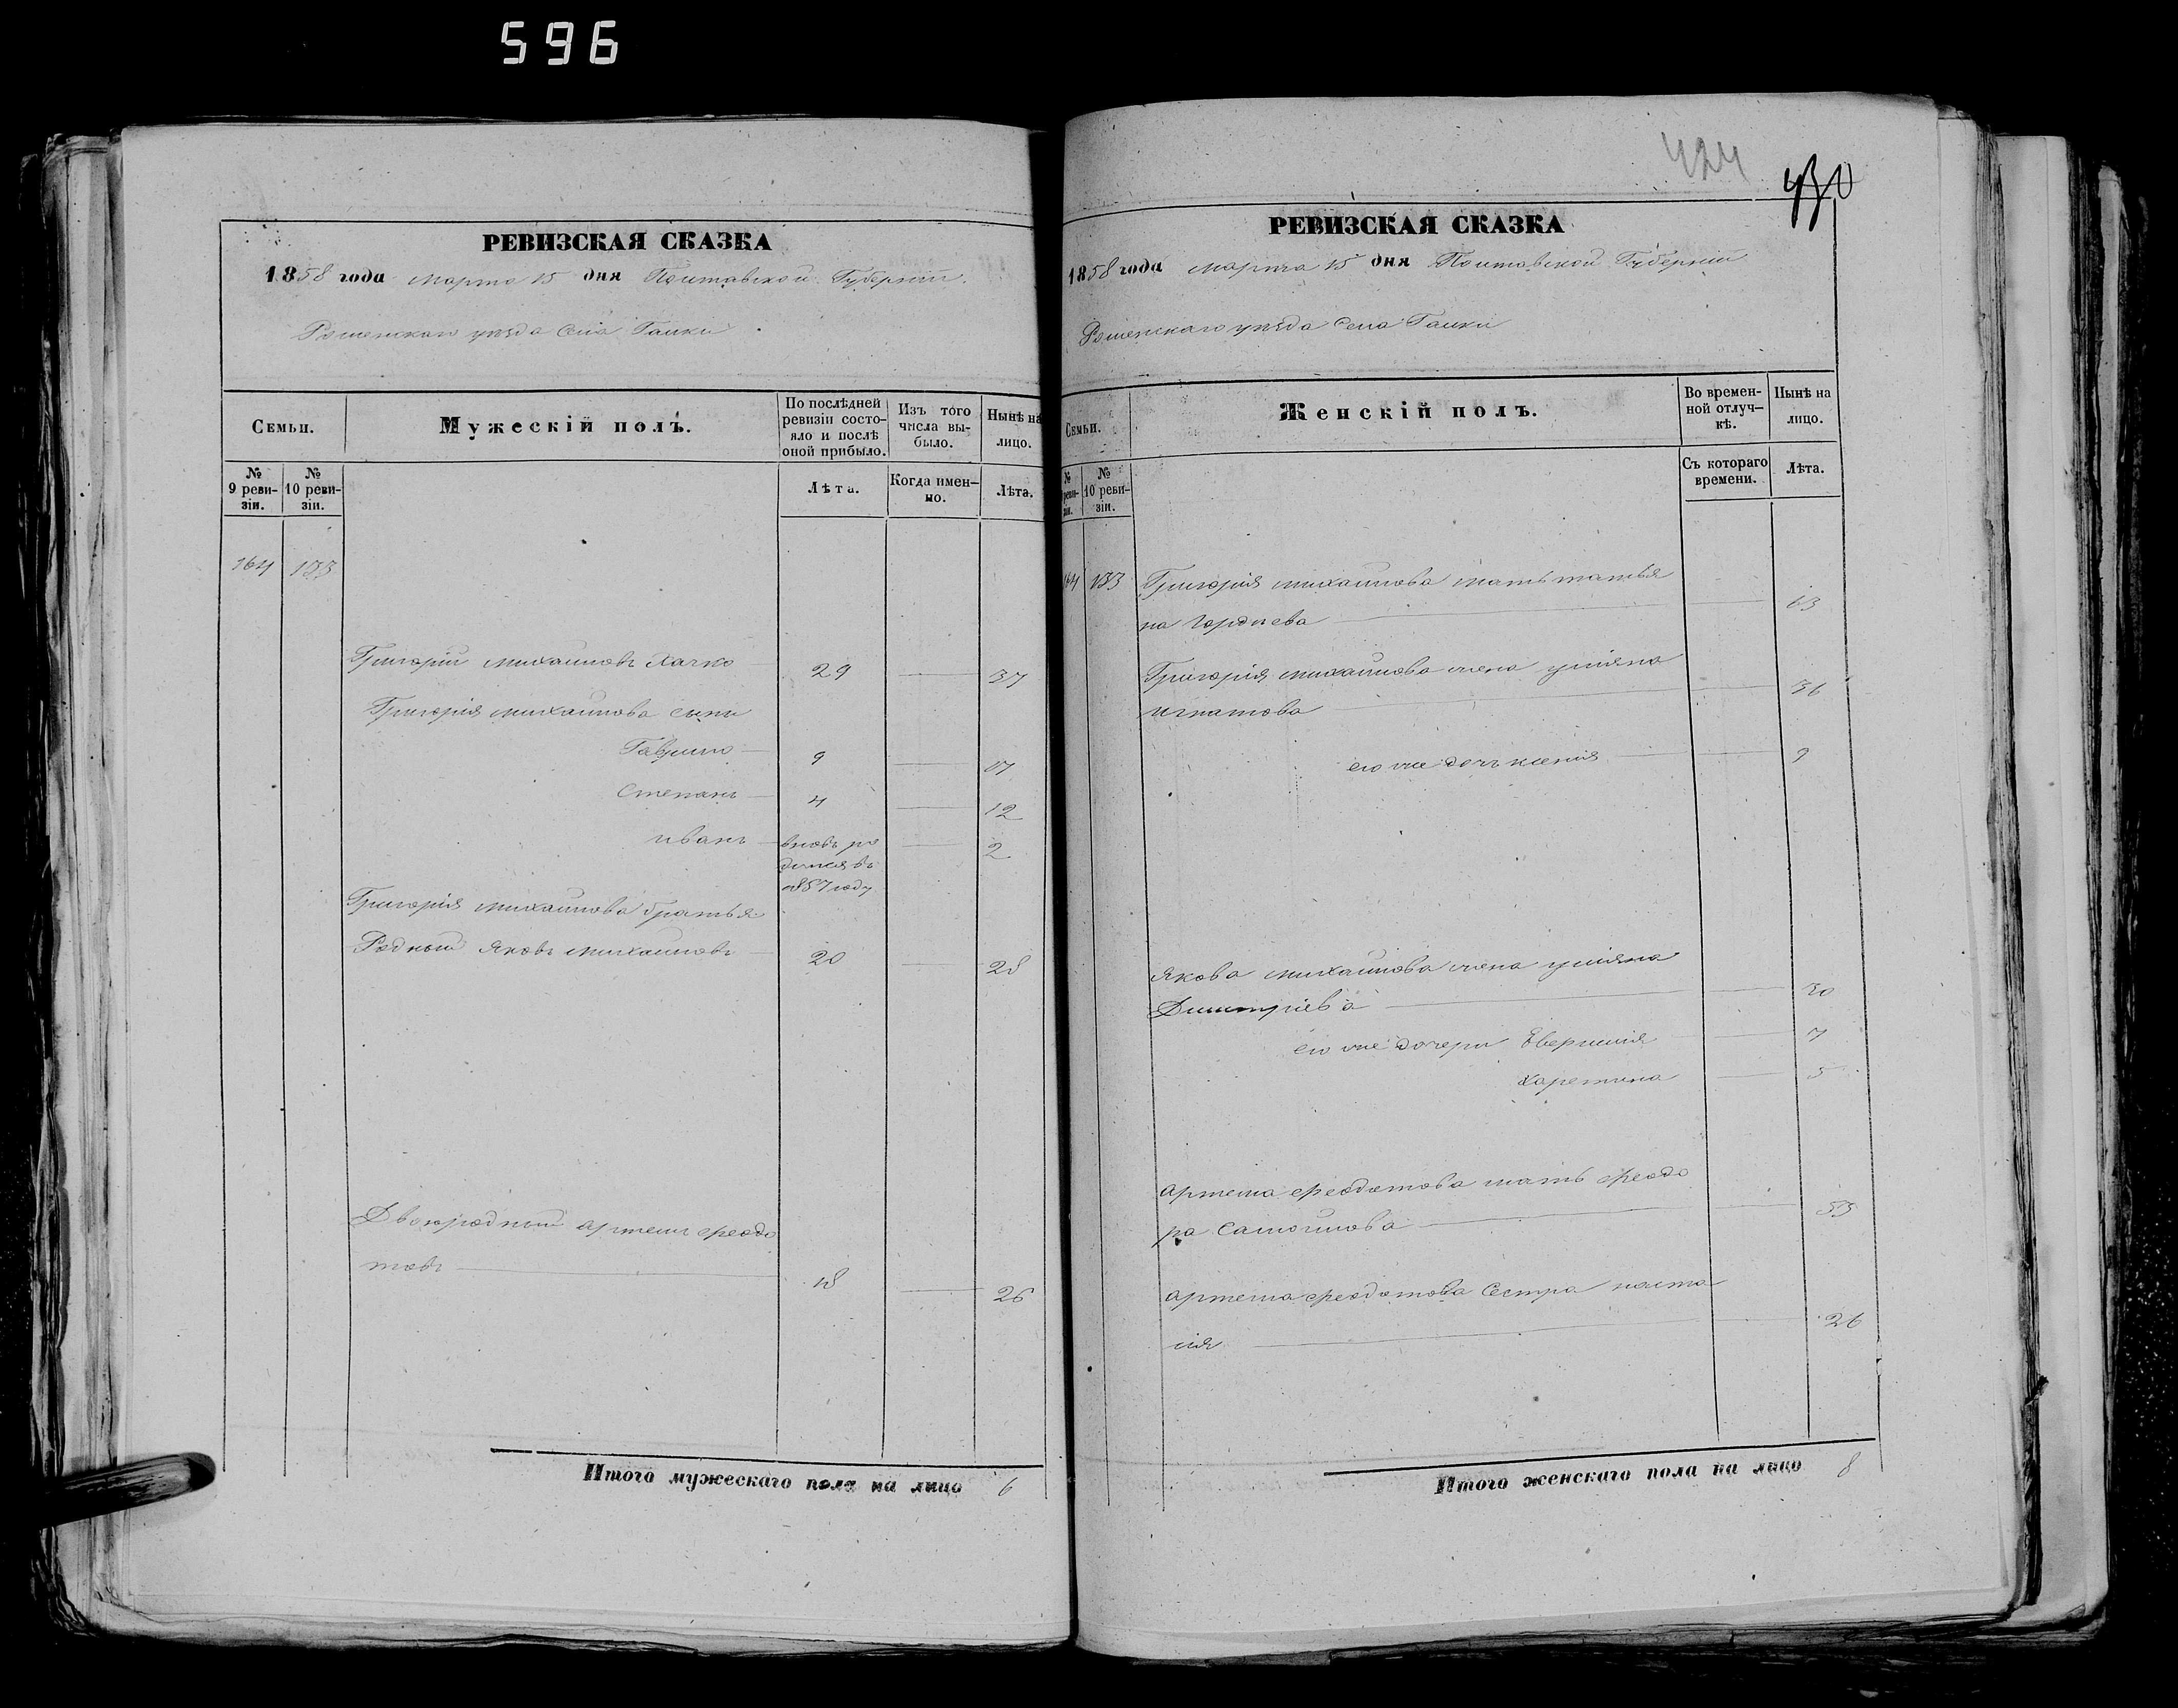 596
РЕВИЗСКАЯ СКАЗКА
1858 года марта 15 дня Полтавской Губерніи
Роменскаго уѣзда села Галки
Семьи.
Мужескій полъ.
По послѣдней ревизіи состояло и послѣ оной прибыло.
Изъ того числа выбыло.
Нынѣ на лицо.
№ 9 ревизіи.
№ 10 ревизіи.
Лѣта.
Когда именно.
Лѣта.
164 133
Григорій михаиловъ 29 37
Григорія михаилова сыны
Гаврило 9 17
Степанъ 4 12
иванъ вновь ро 2
дился въ
1857 году
Григорія михаилова братья
Родный яковъ михаиловъ 20 28
Двоюродный артемъ феодо
товъ 18 26
Итого мужескаго пола на лицо 6
424
430
РЕВИЗСКАЯ СКАЗКА
1858 года марта 15 дня Полтавской Губерніи
Роменскаго уѣзда села Галки
Семьи.
Женскій полъ.
Во временной отлучкѣ.
Нынѣ на лицо.
№ ревизіи.
№ 10 ревизіи.
Съ котораго времени.
Лѣта.
164 133 Григорія михаилова мать татья
на Гордѣева 63
Григорія михаилова жена уліяна
игнатова 36
его же дочь ксенія 9
якова михаилова жена уліяна
Димитріева 30
его же дочери 7
Харетина 5
артема феодотова мать феодо
ра самоилова 53
артема феодотова Сестра наста
сія 26
Итого женскаго пола на лицо 8